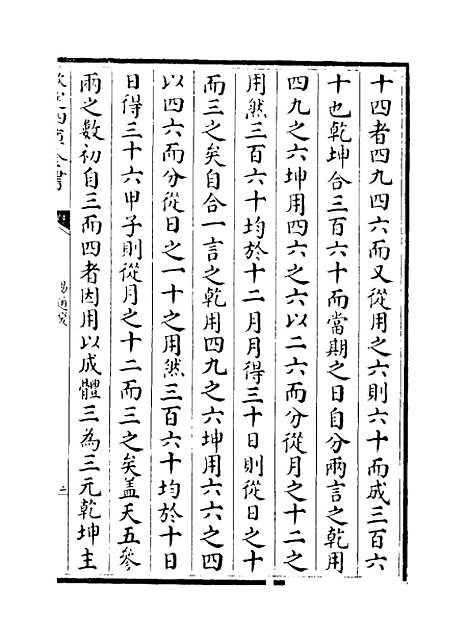 十四者四九四六而又從用之六則六十而成三百六
十也乾坤合三百六十而當期之日自分兩言之乾用
四九之六坤用四六之六以二六而分從月之十二之
用然三百六十均於十二月月得三十日則從日之十
而三之矣自合一言之乾用四九之六坤用六六之四
以四六而分從日之一十之用然三百六十均於十日
日得三十六甲子則從月之十二而三之矣盖天五參
兩之數初自三而四者因用以成體三為三元乾坤主
欽定四庫全書
易通變
二